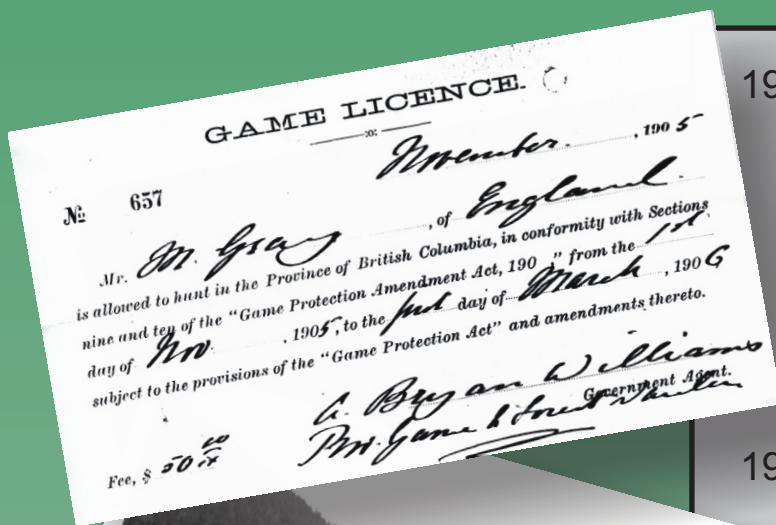 GAME LICENCE.
November. , 1905
№ 657
Mr. M. Gray , of England.
is allowed to hunt in the Province of British Columbia, in conformity with Sections
nine and ten of the "Game Protection Amendment Act, 190 ," from the 1st
day of Nov. , 1905, to the first day of March , 1906
subject to the provisions of the "Game Protection Act" and amendments thereto.
A. Bryan Williams
Government Agent.
Prov. Game & Forest Warden
Fee, $ 50
19
19